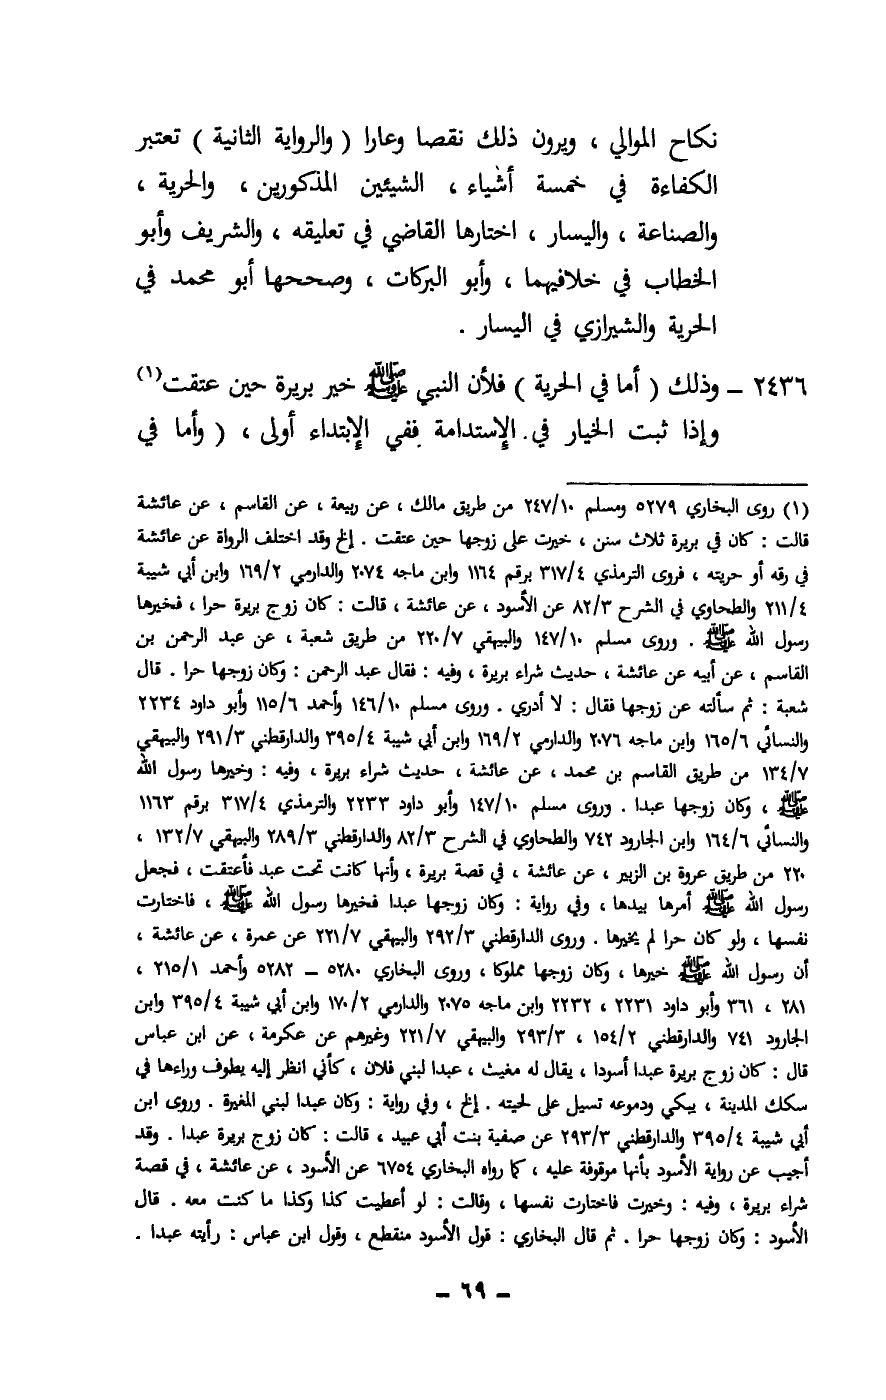 نكاح الموالي ، ويرون ذلك نقصا وعارا ( والرواية الثانية ) تعتبر
الكفاءة في خمسة أشياء ، الشيئين المذكورين ، والحرية ،
والصناعة ، واليسار ، اختارها القاضي في تعليقه ، والشريف وأبو
الخطاب في خلافيهما ، وأبو البركات ، وصححها أبو محمد في
الحرية والشيرازي في اليسار .
٢٤٣٦ – وذلك ( أما في الحرية ) فلأن النبي ﷺ خير بريرة حين عتقت(١)
وإذا ثبت الخيار في الإستدامة ففي الإبتداء أولى ، ( وأما في
(١) روى البخاري ٥٢٧٩ ومسلم ٢٤٧/١٠ من طريق مالك ، عن ربيعة ، عن القاسم ، عن عائشة
قالت : كان في بريرة ثلاث سنن ، خيرت على زوجها حين عتقت . إلخ وقد اختلف الرواة عن عائشة
في رقه أو حريته ، فروى الترمذي ٣١٧/٤ برقم ١١٦٤ وابن ماجه ٢٠٧٤ والدارمي ١٦٩/٢ وابن أبي شيبة
٢١١/٤ والطحاوي في الشرح ٨٢/٣ عن الأسود ، عن عائشة ، قالت : كان زوج بريرة حرا ، فخيرها
رسول الله ﷺ . وروى مسلم ١٤٧/١٠ والبيهقي ٢٢٠/٧ من طريق شعبة ، عن عبد الرحمن بن
القاسم ، عن أبيه عن عائشة ، حديث شراء بريرة ، وفيه : فقال عبد الرحمن : وكان زوجها حرا . قال
شعبة : ثم سألته عن زوجها فقال : لا أدري . وروى مسلم ١٤٦/١٠ وأحمد ١١٥/٦ وأبو داود ٢٢٣٤
والنسائي ١٦٥/٦ وابن ماجه ٢٠٧٦ والدارمي ١٦٩/٢ وابن أبي شيبة ٣٩٥/٤ والدارقطني ٢٩١/٣ والبيهقي
١٣٤/٧ من طريق القاسم بن محمد ، عن عائشة ، حديث شراء بريرة ، وفيه : وخيرها رسول الله
ﷺ ، وكان زوجها عبدا . وروى مسلم ١٤٧/١٠ وأبو داود ٢٢٣٣ والترمذي ٣١٧/٤ برقم ١١٦٣
والنسائي ١٦٤/٦ وابن الجارود ٧٤٢ والطحاوي في الشرح ٨٢/٣ والدارقطني ٢٨٩/٣ والبيهقي ١٣٢/٧ ،
٢٢٠ من طريق عروة بن الزبير ، عن عائشة ، في قصة بريرة ، وأنها كانت تحت عبد فأعتقت ، فجعل
رسول الله ﷺ أمرها بيدها ، وفي رواية : وكان زوجها عبدا فخيرها رسول الله ﷺ ، فاختارت
نفسها ، ولو كان حرا لم يخيرها . وروى الدارقطني ٢٩٢/٣ والبيهقي ٢٢١/٧ عن عمرة ، عن عائشة ،
أن رسول الله ﷺ خيرها ، وكان زوجها مملوكا ، وروى البخاري ٥٢٨٠ – ٥٢٨٢ وأحمد ٢١٥/١ ،
٢٨١ ، ٣٦١ وأبو داود ٢٢٣١ ، ٢٢٣٢ وابن ماجه ٢٠٧٥ والدارمي ١٧٠/٢ وابن أبي شيبة ٣٩٥/٤ وابن
الجارود ٧٤١ والدارقطني ١٥٤/٢ ، ٢٩٣/٣ والبيهقي ٢٢١/٧ وغيرهم عن عكرمة ، عن ابن عباس
قال : كان زوج بريرة عبدا أسودا ، يقال له مغيث ، عبدا لبني فلان ، كأني انظر إليه يطوف وراءها في
سكك المدينة ، يبكي ودموعه تسيل على لحيته . إلخ ، وفي رواية : وكان عبدا لبني المغيرة . وروى ابن
أبي شيبة ٣٩٥/٤ والدارقطني ٢٩٣/٣ عن صفية بنت أبي عبيد ، قالت : كان زوج بريرة عبدا . وقد
أجيب عن رواية الأسود بأنها موقوفة عليه ، كما رواه البخاري ٦٧٥٤ عن الأسود ، عن عائشة ، في قصة
شراء بريرة ، وفيه : وخيرت فاختارت نفسها ، وقالت : لو أعطيت كذا وكذا ما كنت معه . قال
الأسود : وكان زوجها حرا . ثم قال البخاري : قول الأسود منقطع ، وقول ابن عباس : رأيته عبدا .
– ٦٩ –